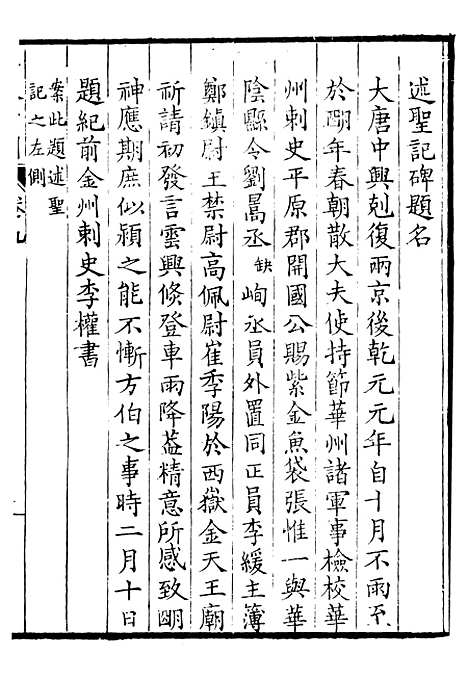 述聖記碑題名
大唐中興剋復兩京後乾元元年自十月不雨至
於朙年春朝散大夫使持節華州諸軍事檢校華
州刺史平原郡開國公賜紫金魚袋張惟一與華
陰縣令劉暠丞缺峋丞員外置同正員李綬主簿
鄭鎮尉王禁尉高佩尉崔季陽於西嶽金天王廟
祈請初發言雲興倏登車雨降葢精意所感致朙
神應期庶似潁之能不慚方伯之事時二月十日
題紀前金州刺史李權書
案此題述聖
記之左側
卷九